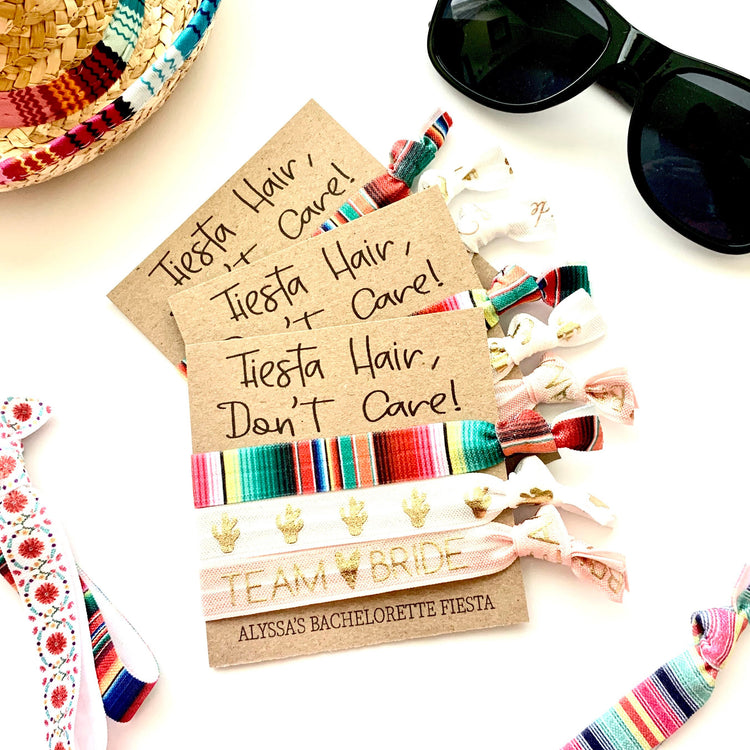 Fiesta Hair,
Don't Care!
Fiesta Hair,
Don't Care!
Fiesta Hair,
Don't Care!
TEAM BRIDE
ALYSSA'S BACHELORETTE FIESTA